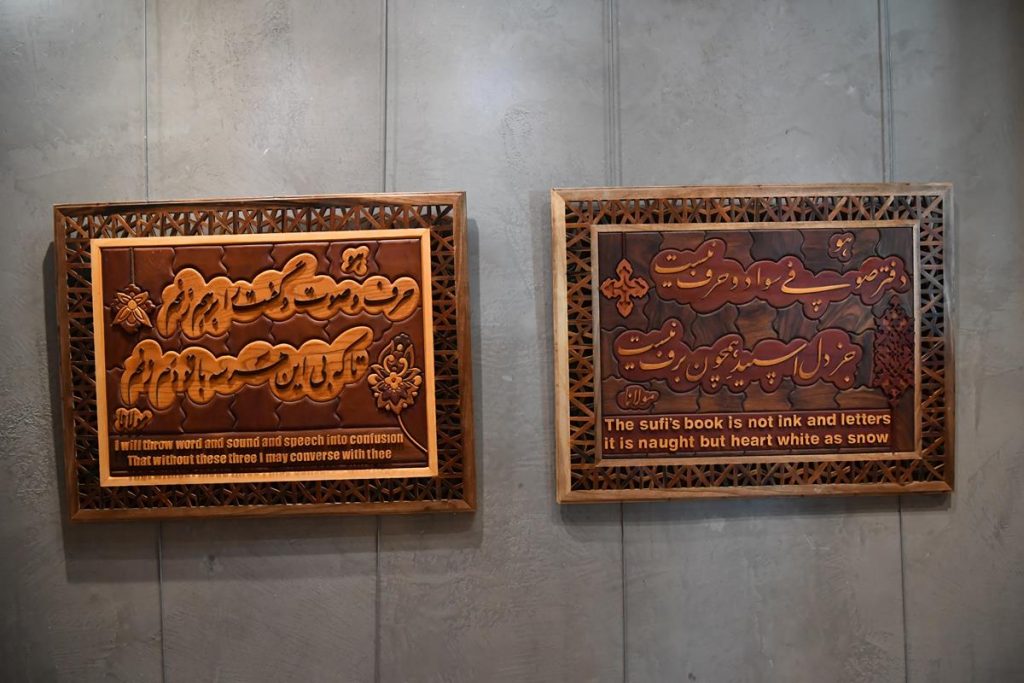 هو
حرف و صوت و گفت را برهم زنم
تا که بی این هر سه با تو دم زنم
مولانا
I will throw word and sound and speech into confusion
That without these three I may converse with thee
هو
دفتر صوفی سواد و حرف نیست
جز دل اسپید همچون برف نیست
مولانا
The sufi's book is not ink and letters
it is naught but heart white as snow